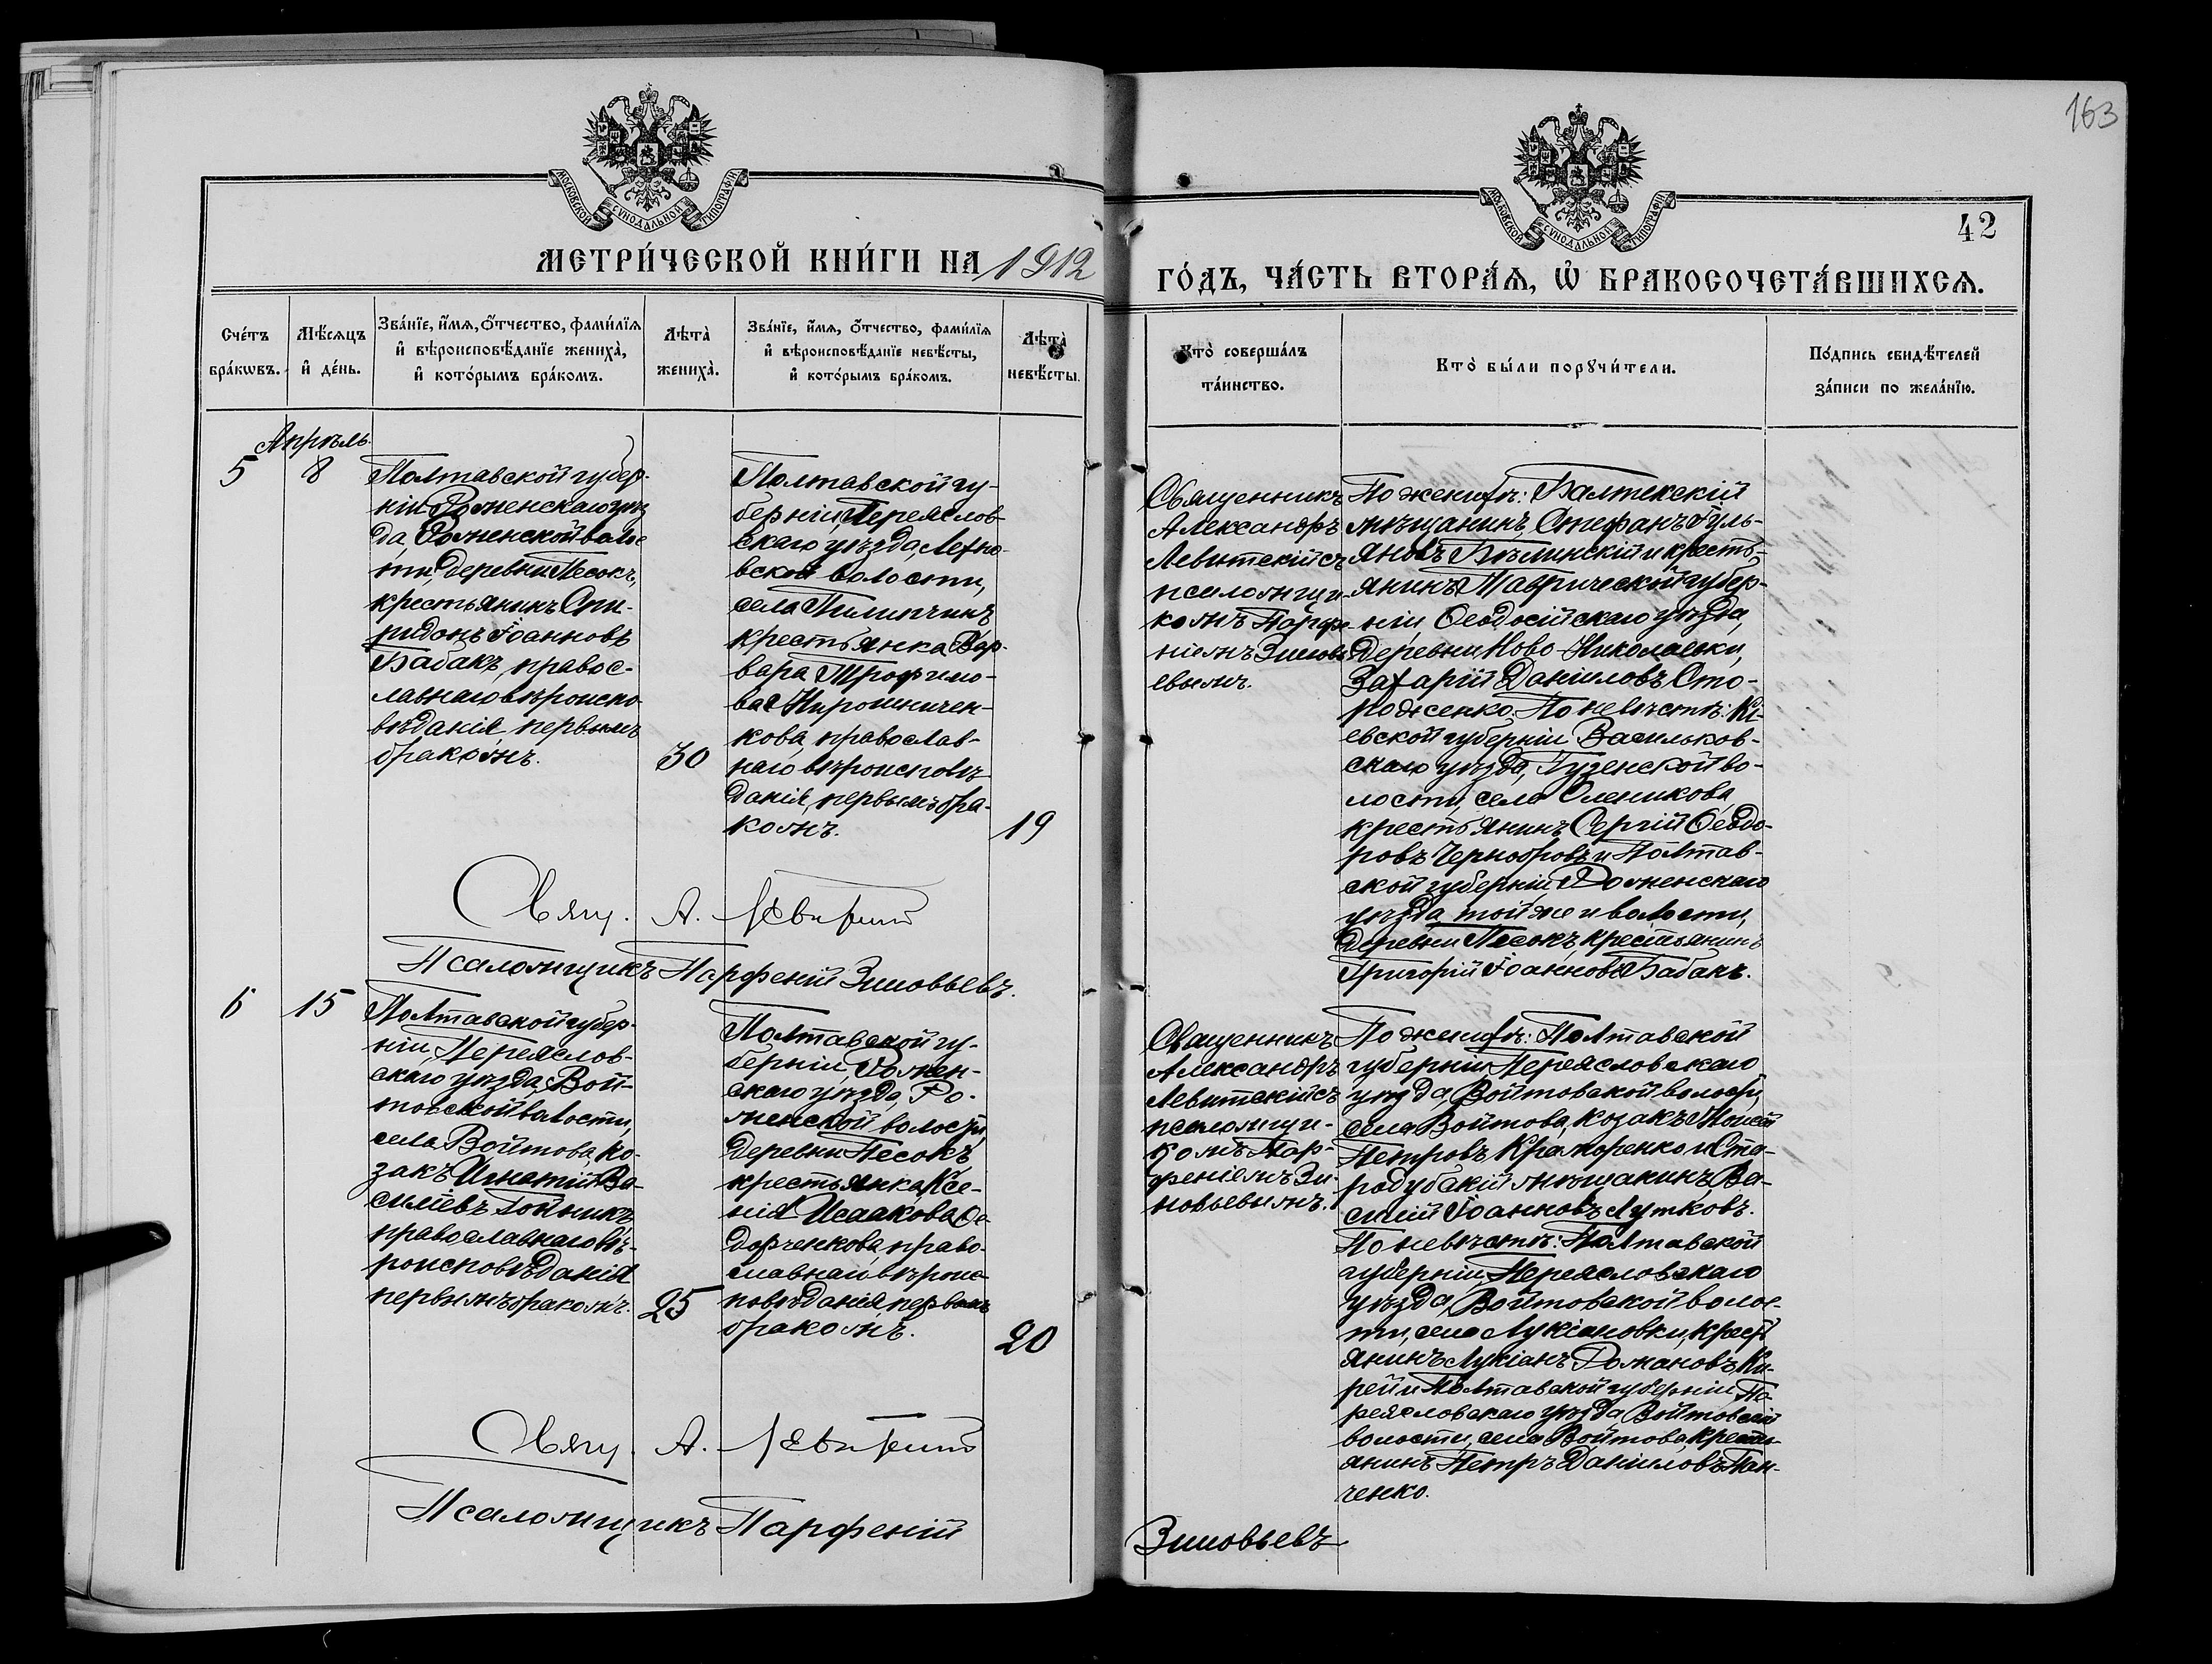 163
МОСКОВСКОЙ СѴНОДАЛЬНОЙ ТИПОГРАФІИ
МОСКОВСКОЙ СѴНОДАЛЬНОЙ ТИПОГРАФІИ
42
МЕТРИ́ЧЕСКОЙ КНИ́ГИ НА 1912
ГО́ДЪ, ЧА́СТЬ ВТОРА́Ѧ, Ѡ҆ БРАКОСОЧЕТА́ВШИХСѦ.
Сче́тъ
бра́кѡвъ.
Мѣ́сѧцъ
и҆ де́нь.
Зва́нїе, и҆́мѧ, ѻ҆́тчество, фами́лїѧ
и҆ вѣроисповѣ́данїе жениха̀,
и҆ кото́рымъ бра́комъ.
Лѣта̀
жениха̀.
Зва́нїе, и҆́мѧ, ѻ҆́тчество, фами́лїѧ
и҆ вѣроисповѣ́данїе невѣ́сты,
и҆ кото́рымъ бра́комъ.
Лѣта̀
невѣ́сты.
Кто̀ соверша́лъ
та́инство.
Кто̀ бы́ли порꙋчи́тели.
По́дпись свидѣ́телей
за́писи по жела́нїю.
Апрѣль.
5
8
Полтавской губер-
ніи Роменскаго уѣз
да, Роменской волос
ти, деревни Песокъ,
крестьянинъ Спи-
ридонъ Іоанновъ
Бабакъ, правос-
лавнаго вѣроиспо-
вѣданія, первымъ
бракомъ.
30
Полтавской гу-
берніи, Переяслов-
скаго уѣзда,
вской волости,
села
крестьянка Вар-
вара Трофимо-
ва Мирошничен-
кова, православ-
наго вѣроисповѣ-
данія, первымъ бра-
комъ.
19
Священникъ
Александръ
Левитскій съ
псаломщи-
комъ Парфе-
ніемъ Зиновь-
евымъ.
По женихѣ: Балтскій
мѣщанинъ, Стефанъ Іуль-
яновъ Бѣлинскій и кресть-
янинъ Таврической губер-
ніи, Ѳеодосійскаго уѣзда,
деревни Ново-Николаевки,
Захарій Даніиловъ Сто-
роженко. По невѣстѣ: Кі-
евской губерніи Васильков-
скаго уѣзда, во-
лости, села Олейникова,
крестьянинъ Сергій Ѳеодо-
ровъ Чернобровъ и Полтав-
ской губерніи, Роменскаго
уѣзда, той же и волости,
деревни Песокъ, крестьянинъ
Григорій Іоанновъ Бабакъ.
Свящ. А. Левитскій
Псаломщикъ Парфеній Зиновьевъ.
6
15
Полтавской губер-
ніи, Переяслов-
скаго уѣзда, Вой-
товской волости,
села Войтова, ко-
закъ Игнатій Ва-
силіевъ
православнаго вѣ-
роисповѣданія
первымъ бракомъ.
25
Полтавской гу-
берніи, Ромен-
скаго уѣзда, Ро-
менской волости,
деревни Песокъ
крестьянка Ксе-
нія Исаакова Ѳе-
дорченкова, право-
славнаго вѣроис-
повѣданія, первымъ
бракомъ.
20
Священникъ
Александръ
Левитскій съ
псаломщи-
комъ Пар-
феніемъ Зи-
новьевымъ.
По женихѣ: Полтавской
губерніи Переясловскаго
уѣзда, Войтовской волости,
села Войтова, козакъ Моисей
Петровъ Крамаренко и Ста-
родубскій мѣщанинъ, Ва-
силій Іоанновъ Лутковъ.
По невѣстѣ: Полтавской
губерніи, Переясловскаго
уѣзда, Войтовской волос-
ти, села Лукіановки, крест
янинъ Лукіанъ Романовъ Ки-
рей и Полтавской губерніи, Пе-
реясловскаго уѣзда, Войтовской
волости, села Войтова, кресть-
янинъ Петръ Даніиловъ Пан-
ченко.
Свящ. А. Левитскій
Псаломщикъ Парфеній
Зиновьевъ